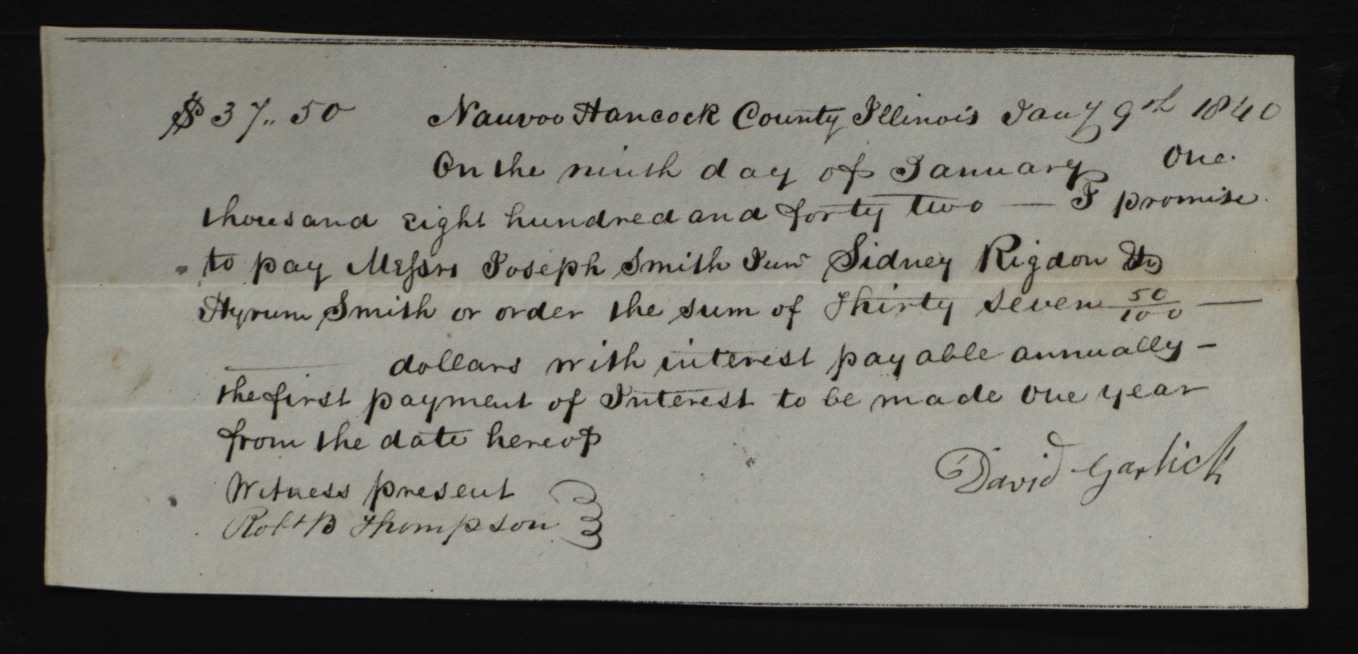 $37.. 50 Nauvoo Hancock County Illinois Jany 9th 1840
On the ninth day of January One
thousand eight hundred and forty two — I promise
to pay Messrs Joseph Smith Junr Sidney Rigdon &
Hyrum Smith or order the sum of Thirty seven 50/100 —
— dollars with interest payable annually –
the first payment of Interest to be made one year
from the date hereof
David Garlick
Witness present
Robt B Thompson